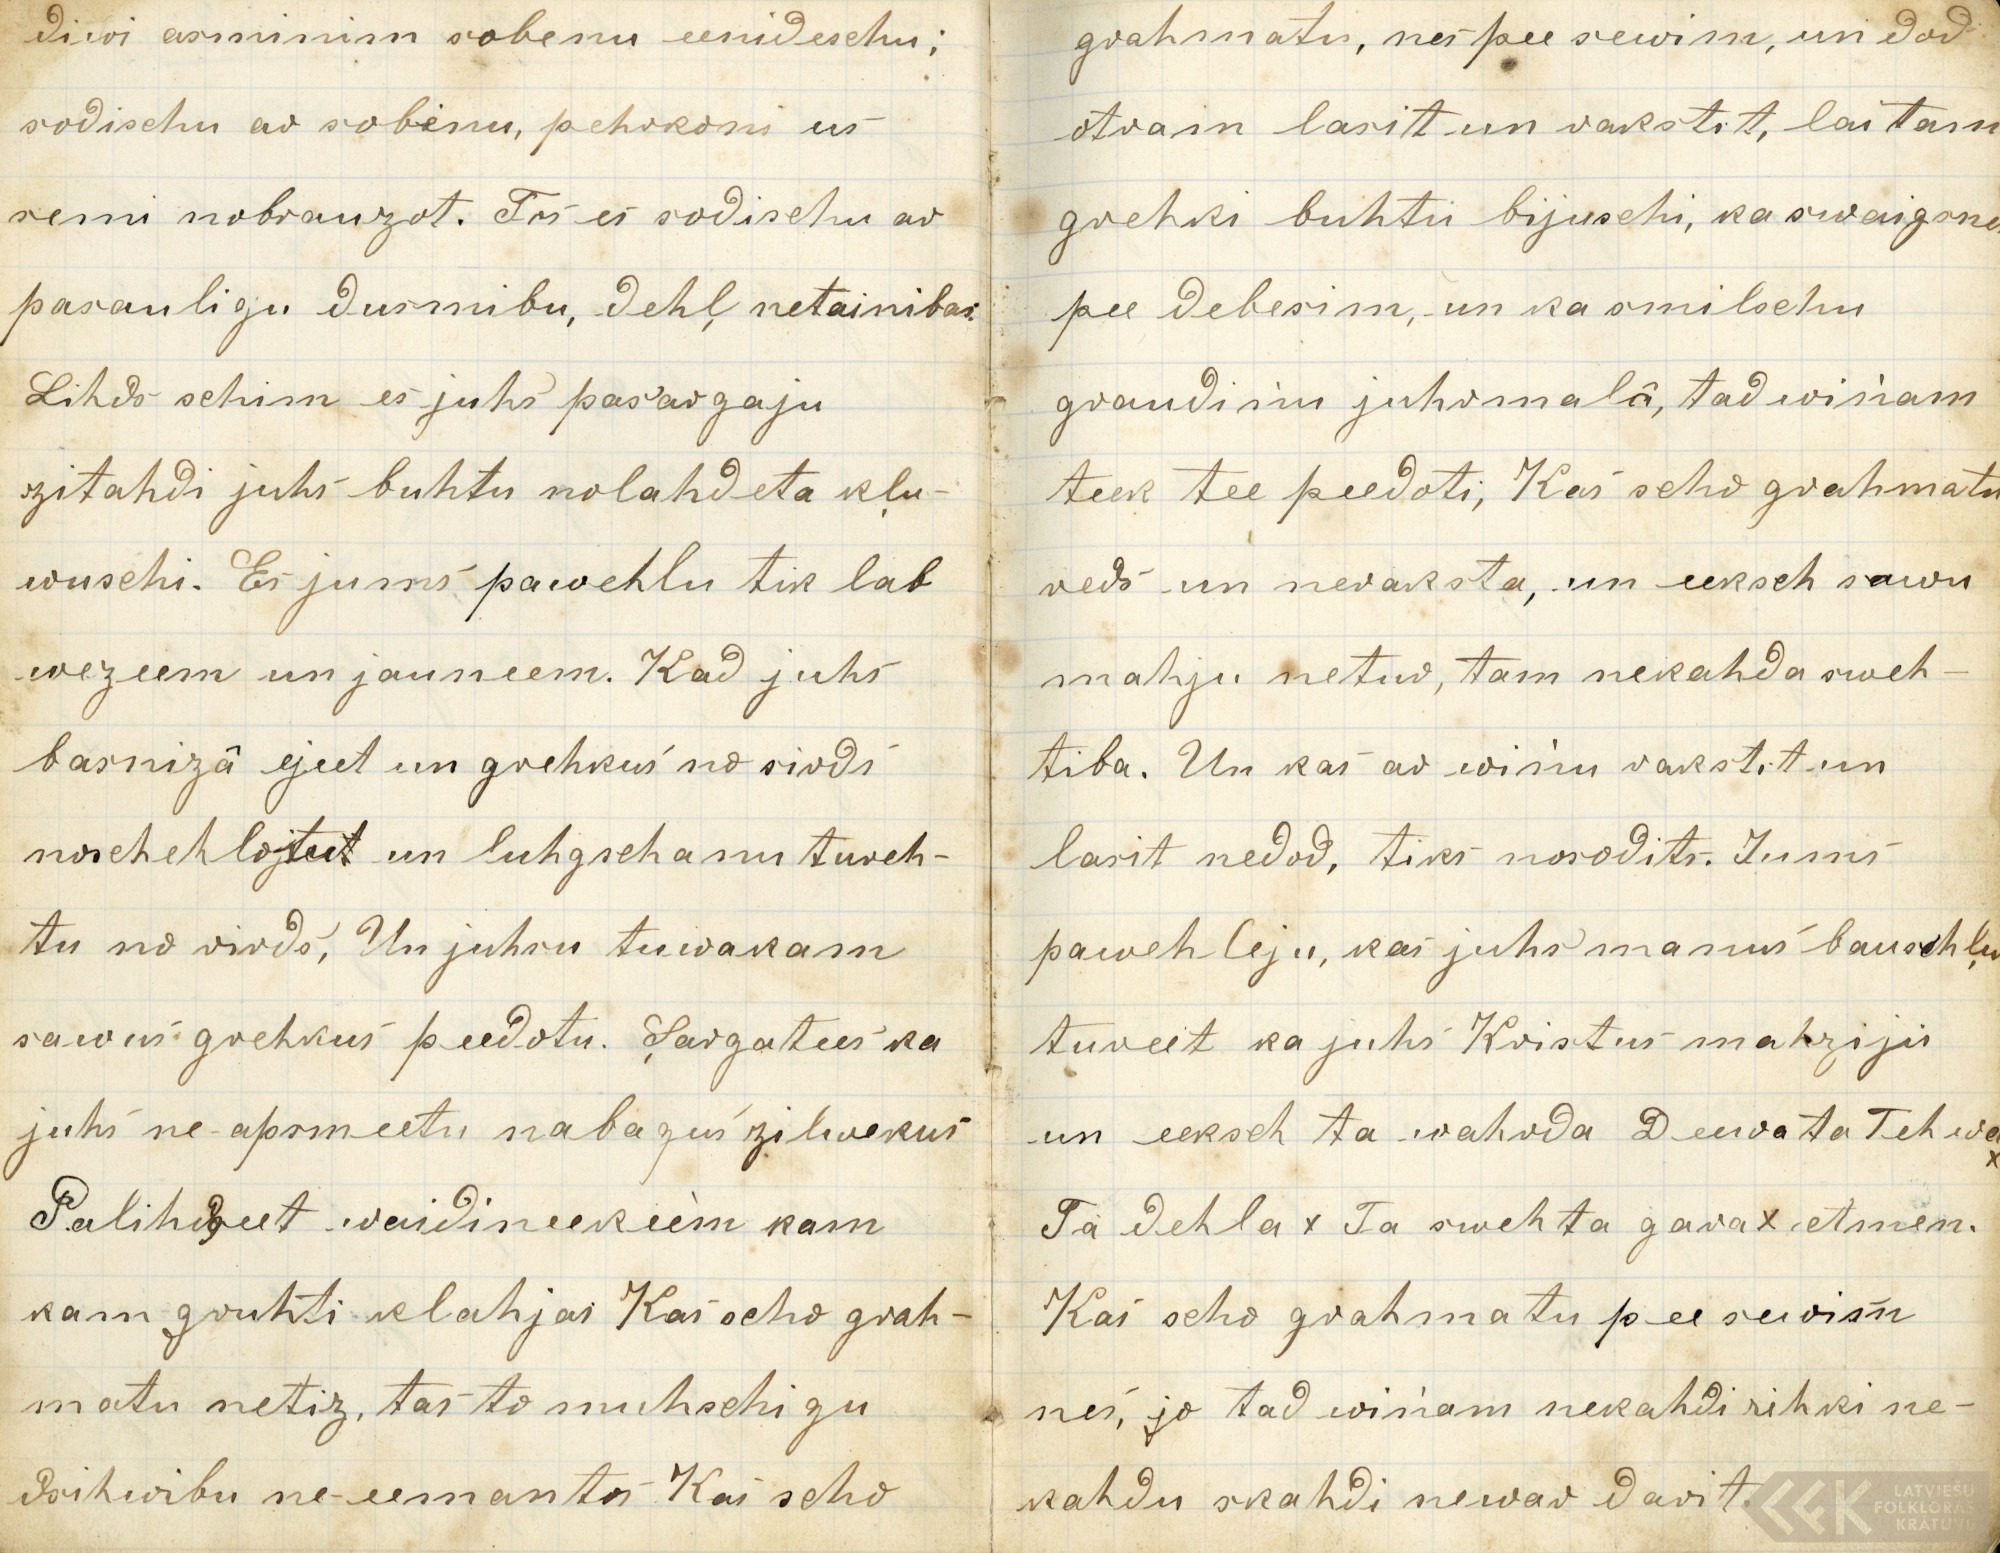 diwi asminim sobenu eenideschu;
sodischu ar sobenu, pehrkoni us
semi nobrauzot. Tos es sodischu ar
pasauligu dusmibu, dehļ netainibas.
Lihds schim es juhs pasargaju
zitahdi juhs buhtu nolahdeta kļu-
wuschi. Es jums pawehlu tik lab
wezeem un jauneem. Kad juhs
basnizâ ejeet un grehkus no sirds
noschehlojteet un luhgschanu tureh-
tu no sirds, Un juhsu tuwakam
sawus grehkus peedotu. Sargatees ka
juhs ne-apsmeetu nabagus zilwekus
Palihdseet waidineekeem kam
kam gruhti klahjas Kas scho grah-
matu netiz, tas to muhschigu
dsihwibu ne-eemantos Kas scho
grahmatu, nes pee sewim, un dod
otram lasit un rakstit, lai tam
grehki buhtu bijuschi, ka swaigsnes
pee debesim, un ka smilschu
graudinu juhrmalâ, tad winam
teek tee peedoti, Kas scho grahmatu
reds un neraksta, un eeksch sawu
mahju netur, tam nekahda sweh-
tiba. Un kas ar winu rakstit un
lasit nedod, tiks nosodits. Jums
pawehleju, kas juhs manus bauschļu
tureet ka juhs Kristus mahziju
un eeksch ta wahrda Deewa ta Tehwa
x
Ta dehla x Ta swehta gara x etmen.
Kas scho grahmatu pee sewim
nes, jo tad winam nekahdi rihki ne-
kahdu skahdi newar darit.
LATVIEŠU
FOLKLORAS
KRĀTUVE